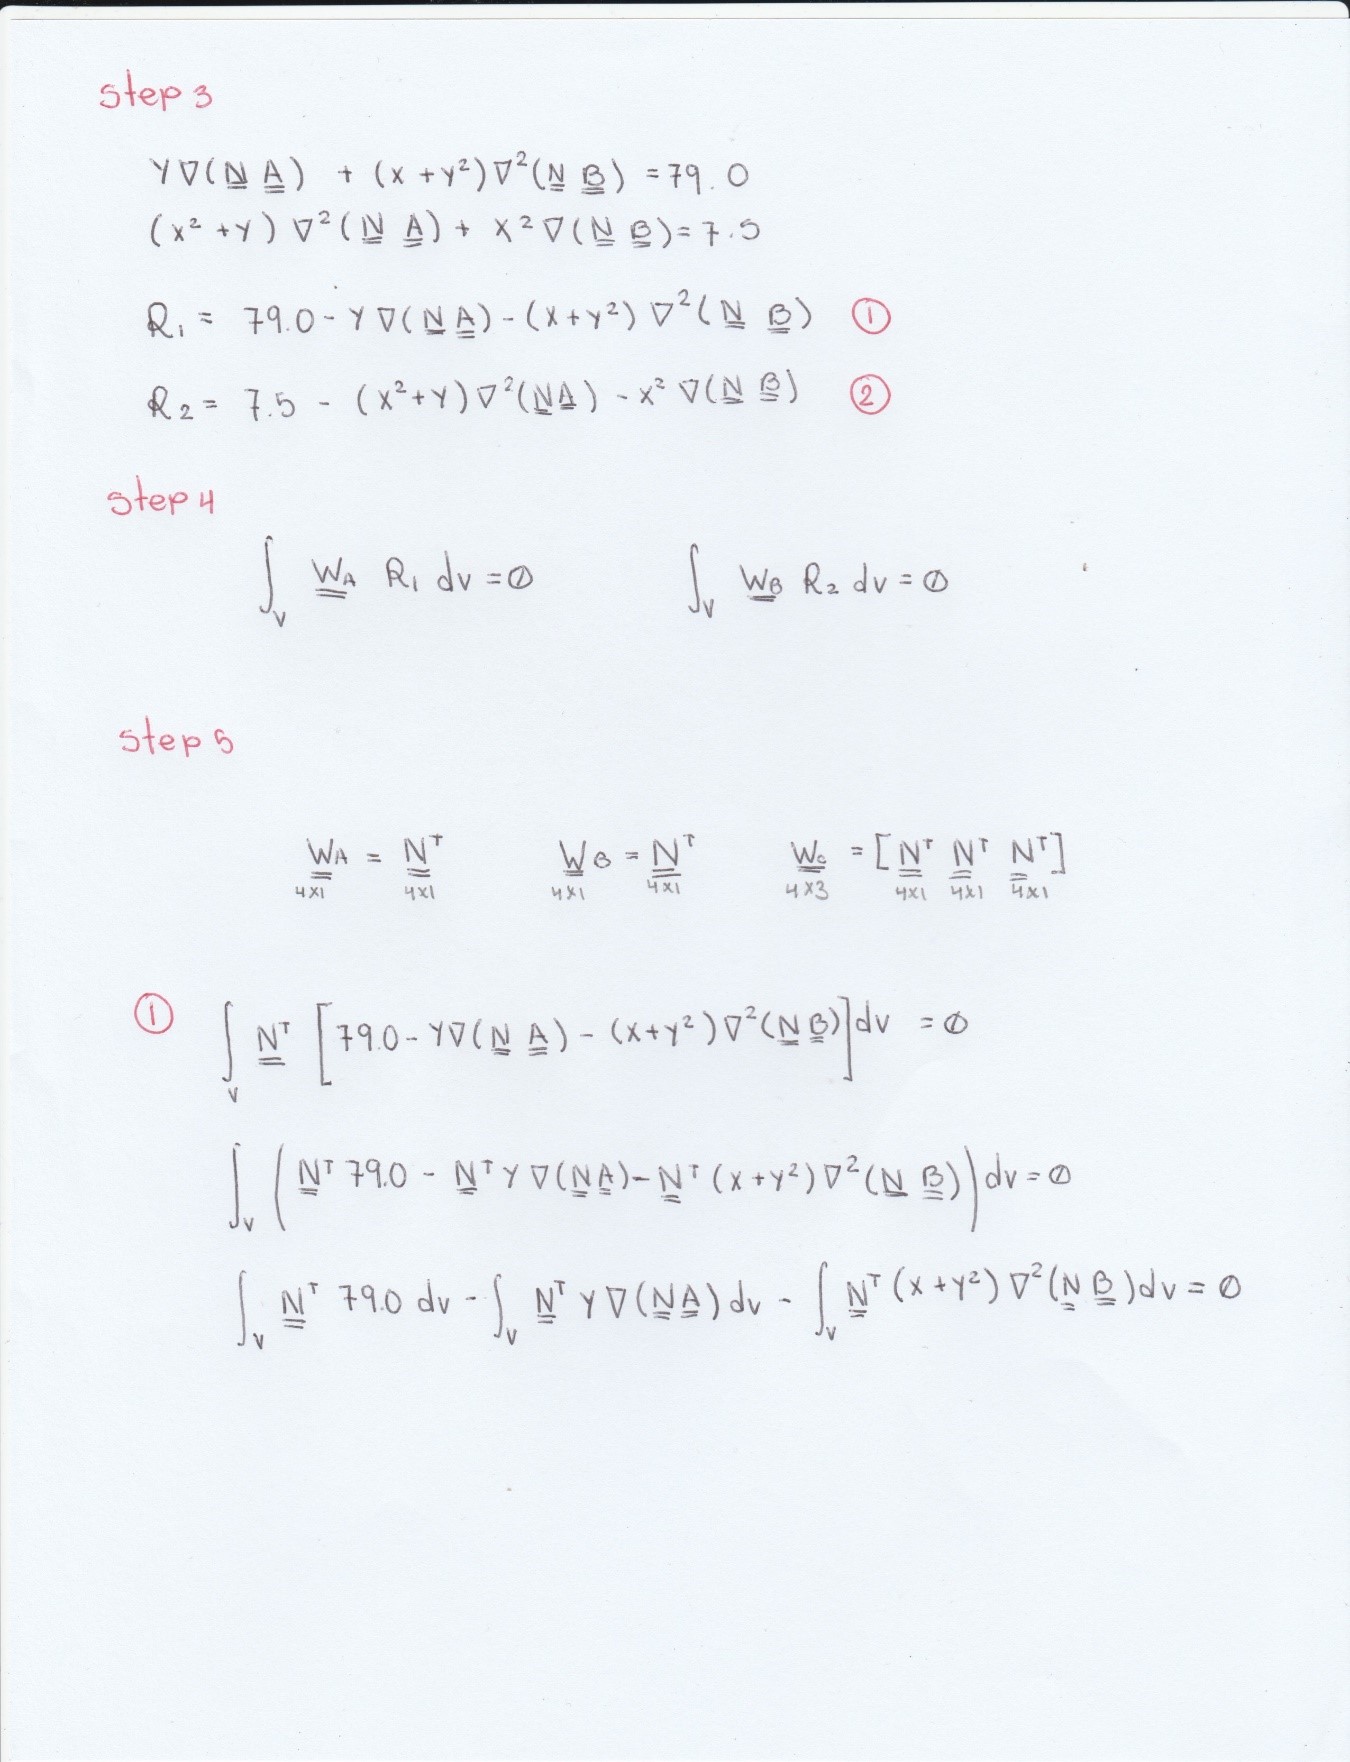 Step 3
Y∇(N A) + (x + y²)∇²(N B) = 79.0
(x² + y) ∇²(N A) + x²∇(N B) = 7.5
R₁ = 79.0 - Y∇(N A) - (x + y²) ∇²(N B) ①
R₂ = 7.5 - (x² + y)∇²(NA) - x² ∇(N B) ②
Step 4
∫ᵥ W_A R₁ dv = 0 ∫ᵥ W_B R₂ dv = 0
Step 5
W_A = Nᵀ W_B = Nᵀ W_c = [Nᵀ Nᵀ Nᵀ]
4x1 4x1 4x1 4x1 4x3 4x1 4x1 4x1
① ∫ᵥ Nᵀ [79.0 - Y∇(N A) - (x + y²)∇²(N B)] dv = 0
∫ᵥ (Nᵀ 79.0 - Nᵀ Y ∇(NA) - Nᵀ (x + y²)∇²(N B)) dv = 0
∫ᵥ Nᵀ 79.0 dv - ∫ᵥ Nᵀ Y ∇(NA) dv - ∫ᵥ Nᵀ (x + y²) ∇²(N B) dv = 0